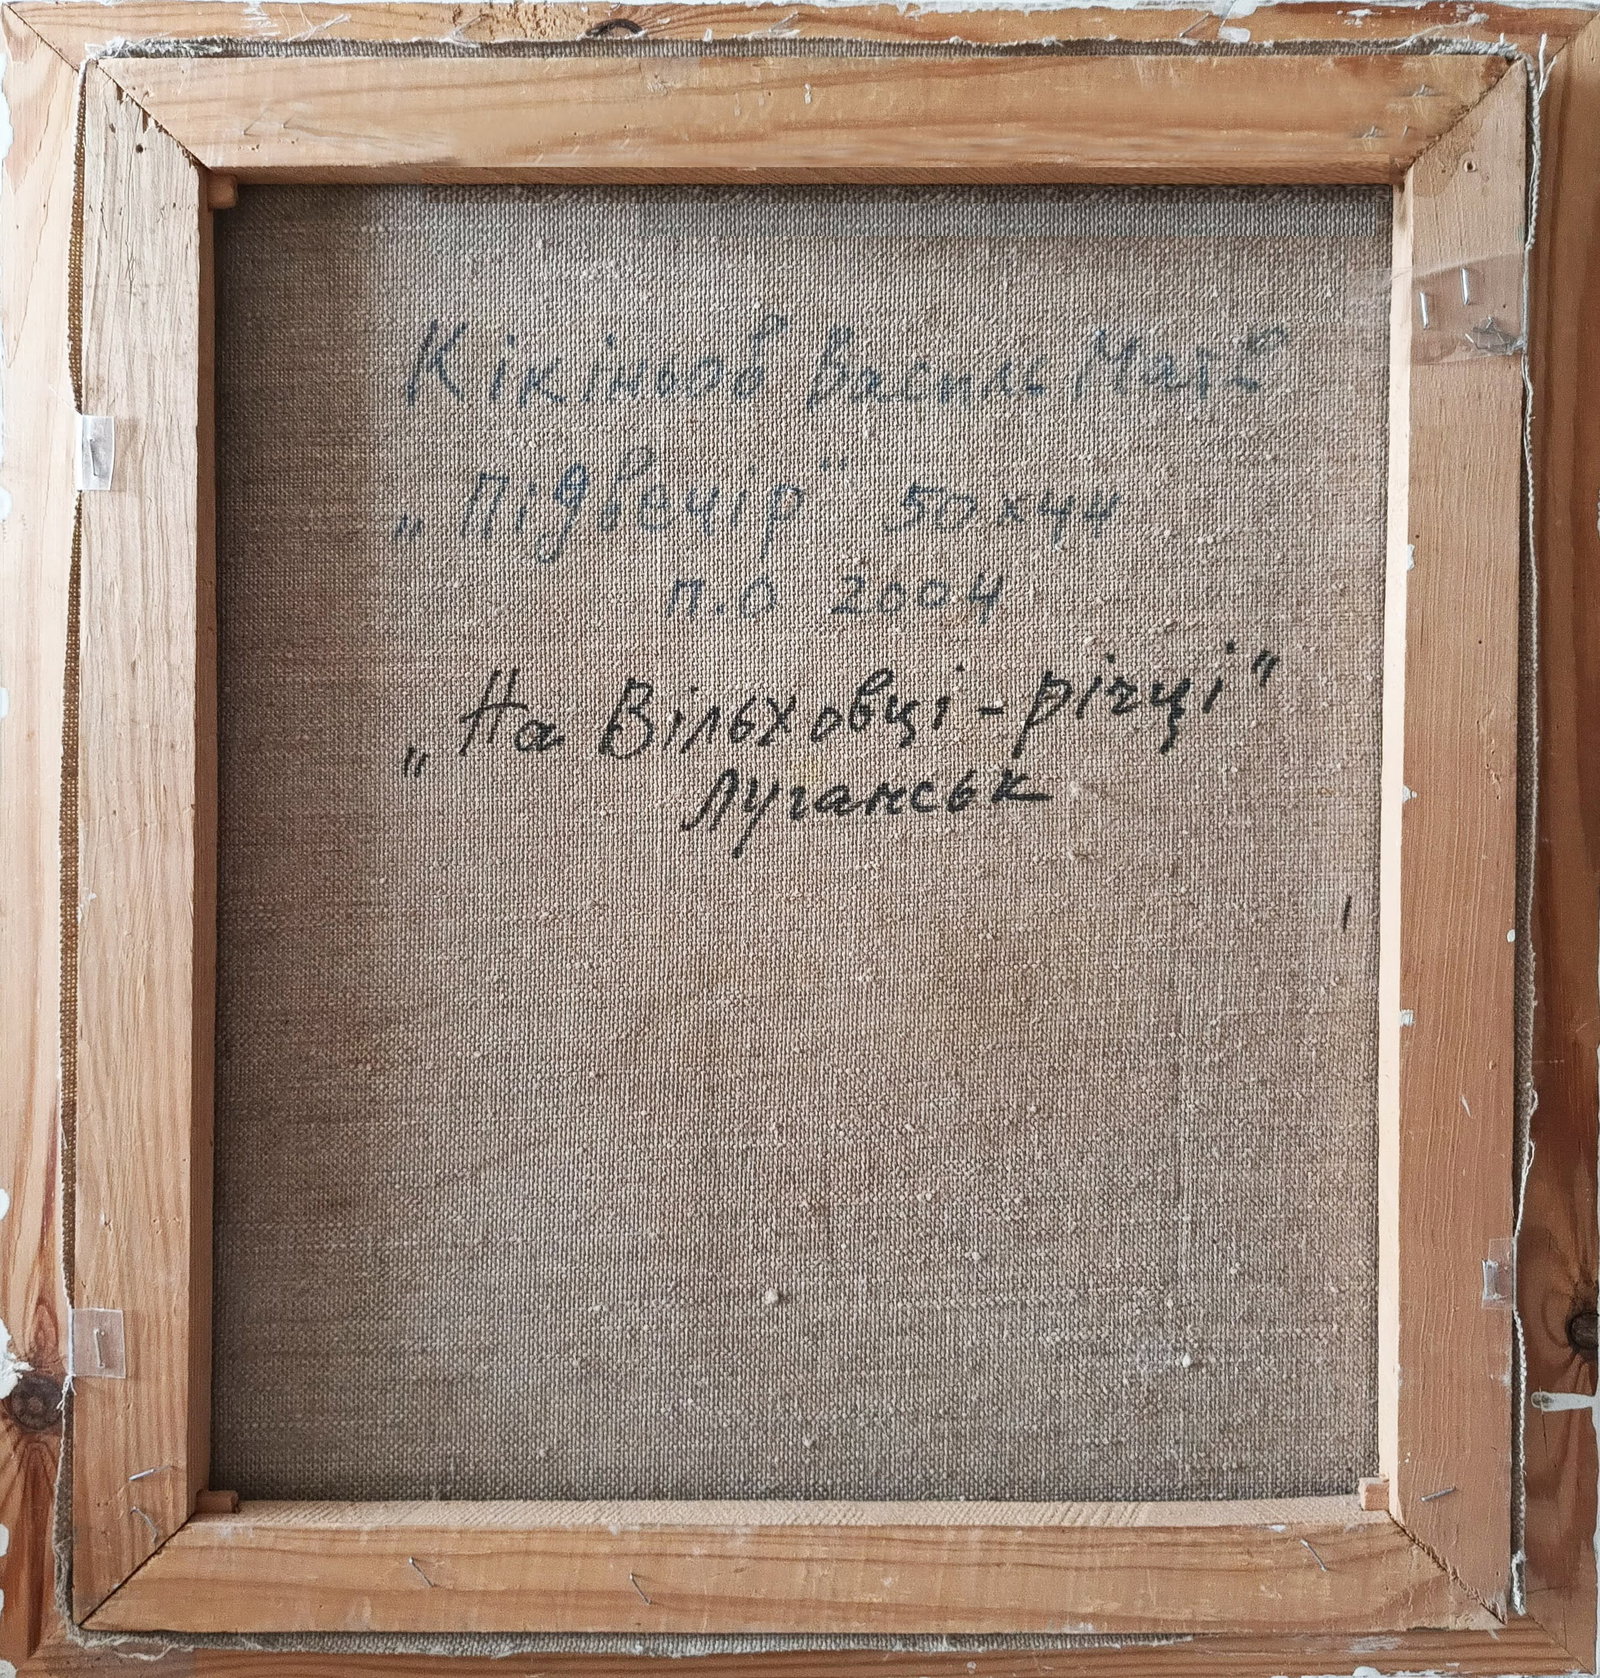 Кікіньов Василь
„Підвечір" 50х44
п.о 2004
„На Вільховці - річці"
Луганськ